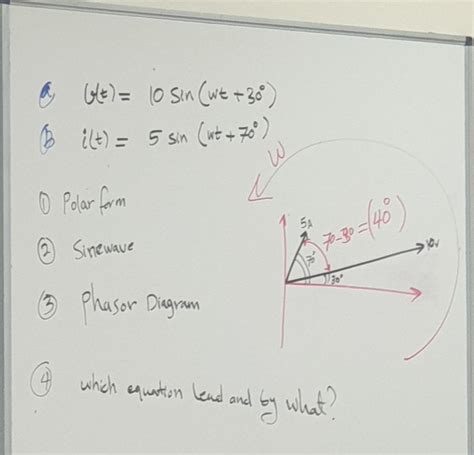 a) v(t) = 10 sin(wt + 30°)
b) i(t) = 5 sin(wt + 70°)
① Polar form
② Sinewave
③ Phasor Diagram
④ which equation lead and by what?
W
5A
70-30 = (40°)
70°
10v
30°